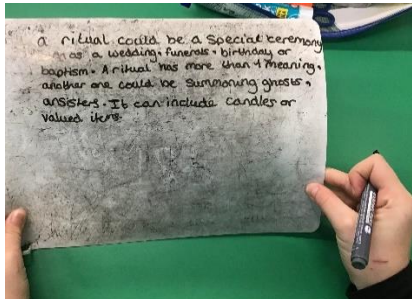 a ritual could be a special ceremony
as a wedding, funerals, birthday or
baptism. A ritual has more than 1 meaning,
another one could be summoning ghosts,
ansisters. It can include candles or
valued items.